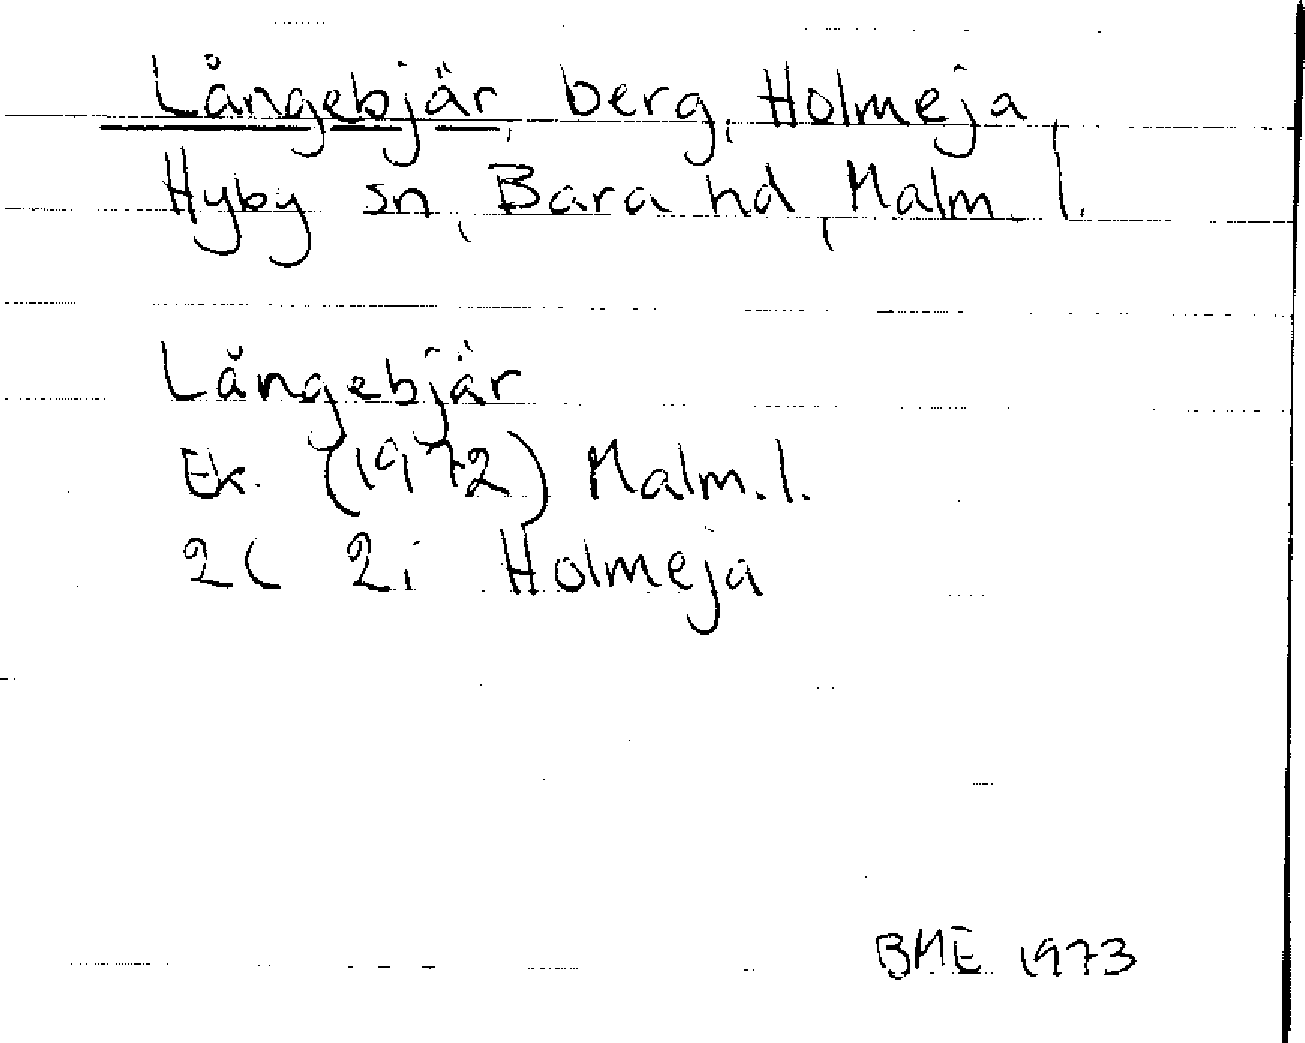 Långebjär, berg, Holmeja,
Hyby sn, Bara hd, Malm. l.
Långebjär
Ek. (1972) Malm. l.
2C 2i Holmeja
BME 1973